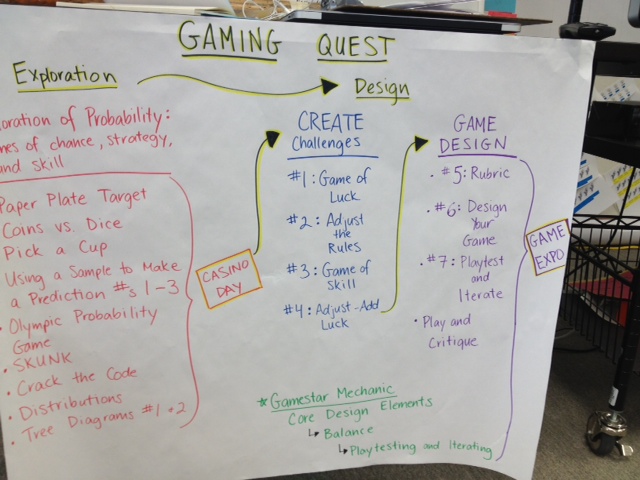 GAMING QUEST
Exploration
Design
oration of Probability:
mes of chance, strategy,
and skill
Paper Plate Target
Coins vs. Dice
Pick a Cup
Using a Sample to Make
a Prediction #s 1-3
• Olympic Probability
Game
• SKUNK
• Crack the Code
• Distributions
• Tree Diagrams #1+2
CASINO
DAY
CREATE
Challenges
#1: Game of
Luck
#2: Adjust
the
Rules
#3: Game of
Skill
#4: Adjust-Add
Luck
GAME
DESIGN
• #5: Rubric
• #6: Design
Your
Game
• #7: Playtest
and
Iterate
• Play and
Critique
GAME
EXPO
* Gamestar Mechanic
Core Design Elements
↳ Balance
↳ Playtesting and Iterating